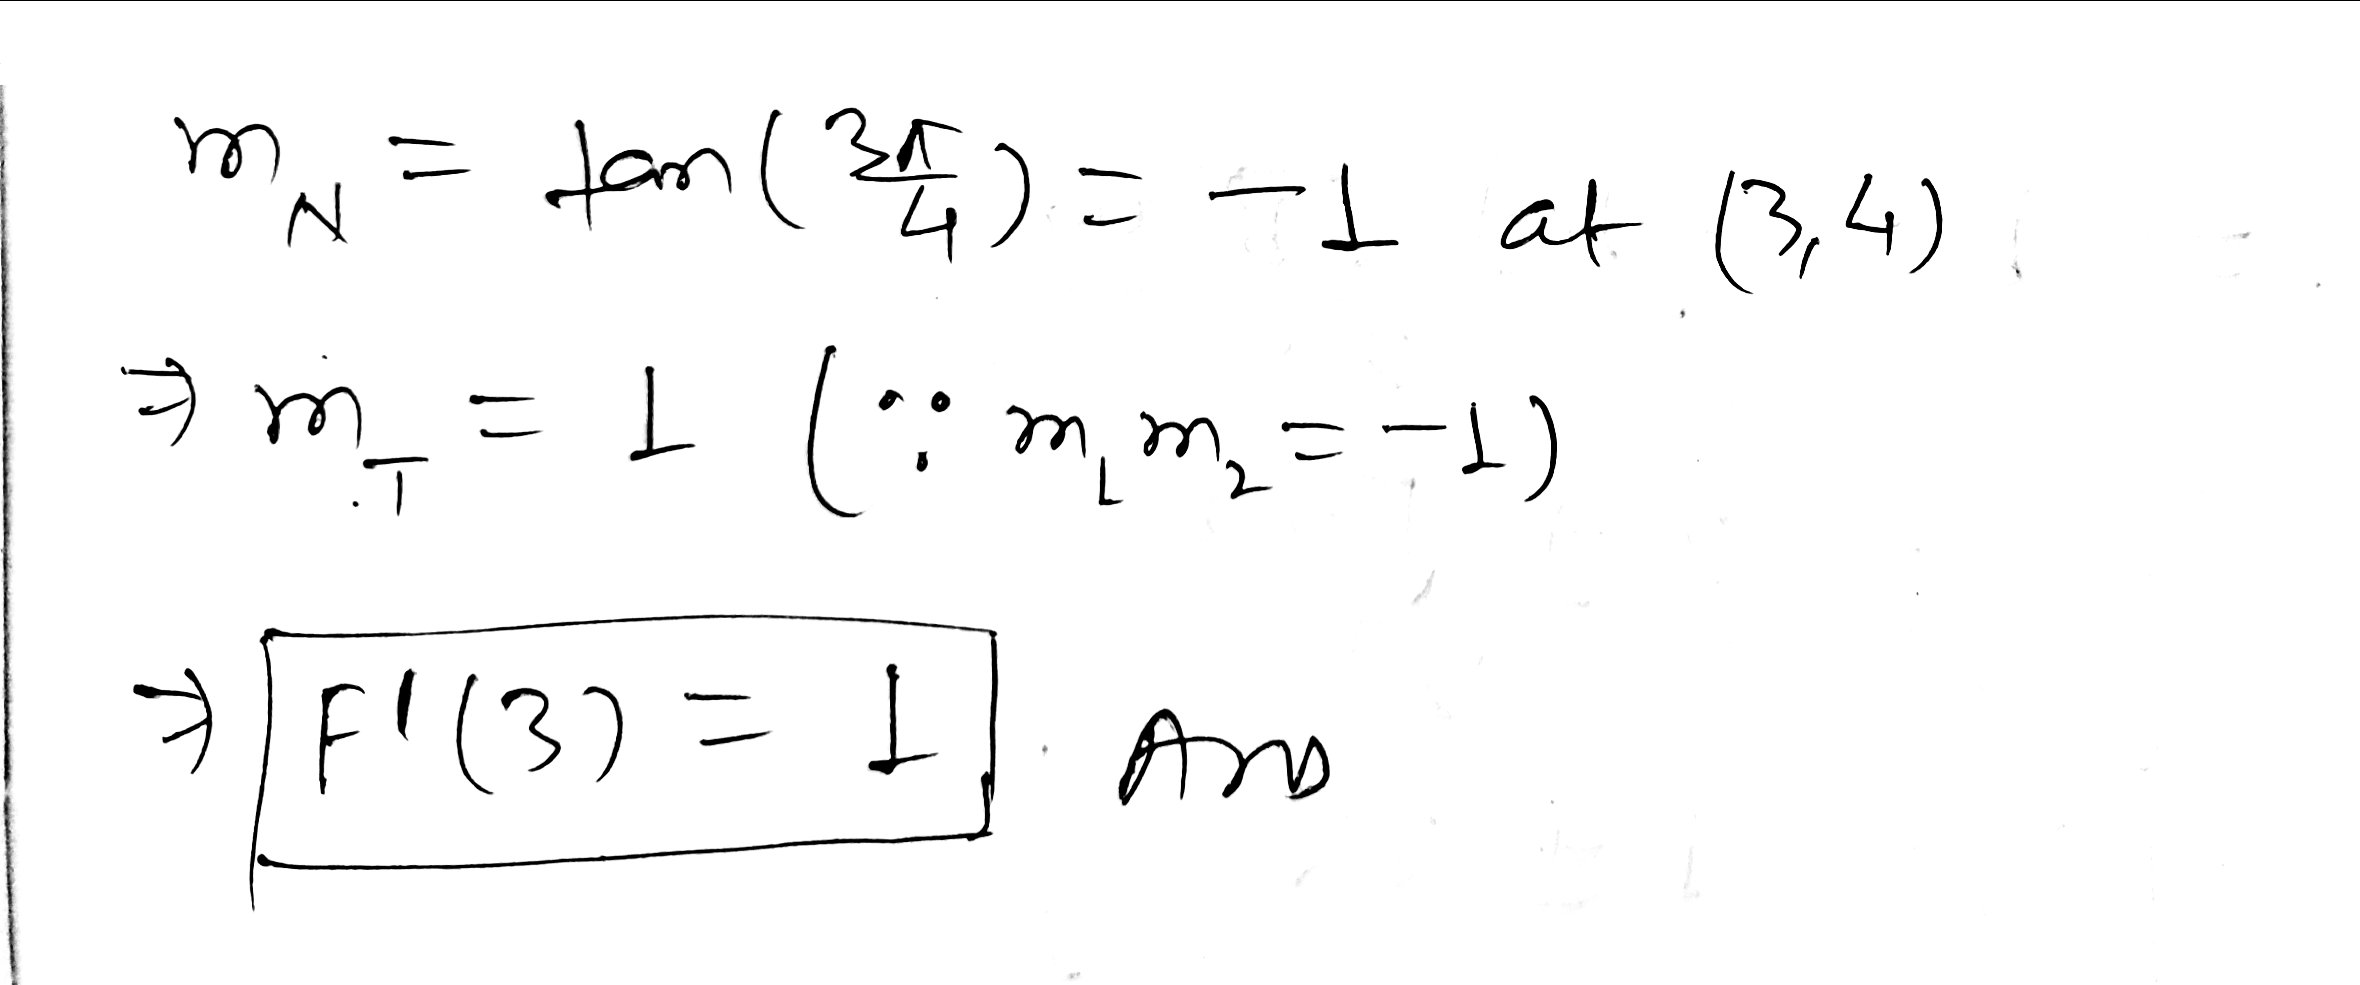 m_N = tan(3π/4) = -1 at (3,4)
⇒ m_T = 1 (∵ m₁m₂ = -1)
⇒ F'(3) = 1 Ans